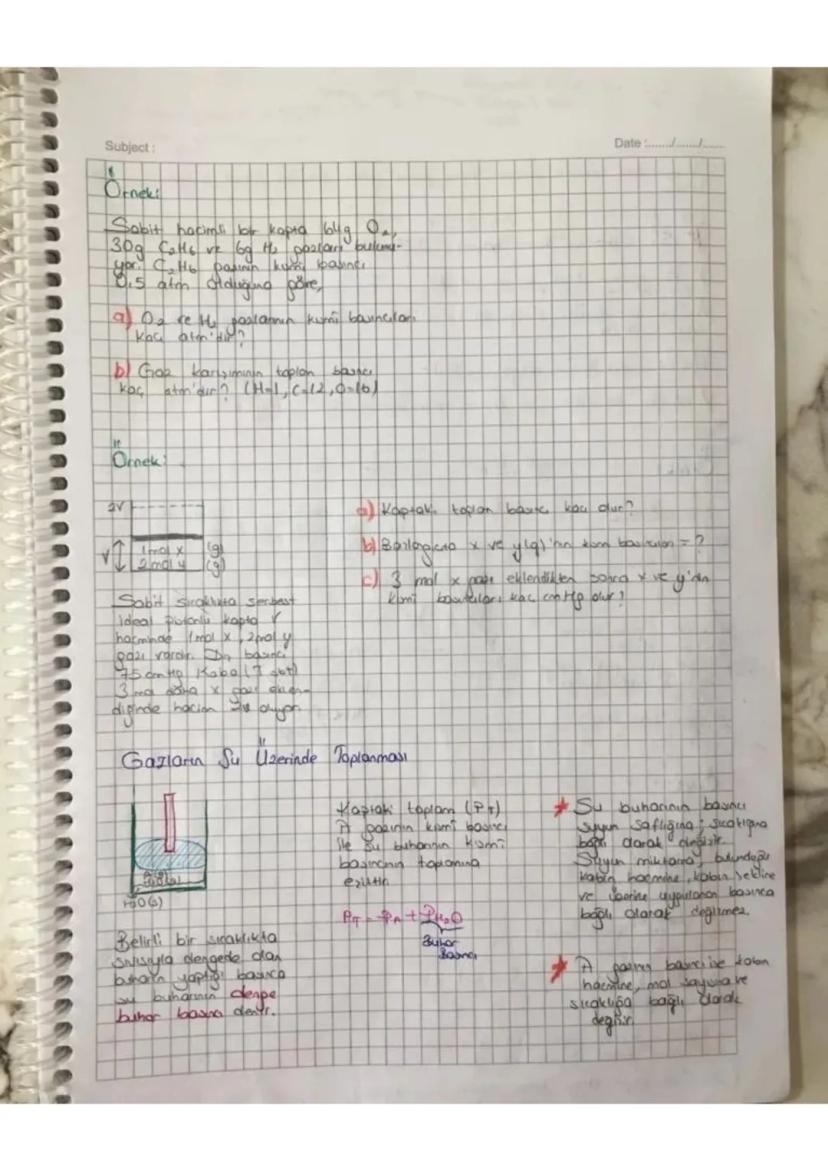 Subject :
Date :......./......./.......
Örnek:
Sabit hacimli bir kapta 64g O₂,
30g C₂H₆ ve 6g H₂ gazları bulunu-
yor. C₂H₆ gazının kısmi basıncı
0.5 atm olduğuna göre,
a) O₂ ve H₂ gazlarının kısmi basınçları
kaç atm'dir?
b) Gaz karışımının toplam basıncı
kaç atm'dir? (H=1, C=12, O=16)
Örnek:
2V
V
1mol x (g)
2mol y (g)
a) Kaptaki toplam basınç kaç olur?
b) Başlangıçta x ve y(g)'nin kısmi basınçları = ?
c) 3 mol x gazı eklendikten sonra x ve y'nin
kısmi basınçları kaç cmHg olur?
Sabit sıcaklıkta serbest
ideal pistonlu kapta V
hacminde 1mol x, 2mol y
gazı vardır. Dış basınç
75 cmHg Kaba
3 mol daha x gazı eklen-
diğinde hacim oluyor.
Gazların Su Üzerinde Toplanması
H₂O(s)
Kaptaki toplam (PT)
A gazının kısmi basıncı
ile su buharının kısmi
basıncının toplamına
eşittir.
PT = PA + PH₂O
Buhar
Basıncı
Belirli bir sıcaklıkta
sıvısıyla dengede olan
buharın yaptığı basınca
su buharının denge
buhar basıncı denir.
★ Su buharının basıncı
suyun saflığına, sıcaklığına
bağlı olarak değişir.
Suyun miktarına, bulunduğu
kabın hacmine, kabın şekline
ve üzerine uygulanan basınca
bağlı olarak değişmez.
★ A gazının basıncı ise kabın
hacmine, mol sayısına ve
sıcaklığa bağlı olarak
değişir.